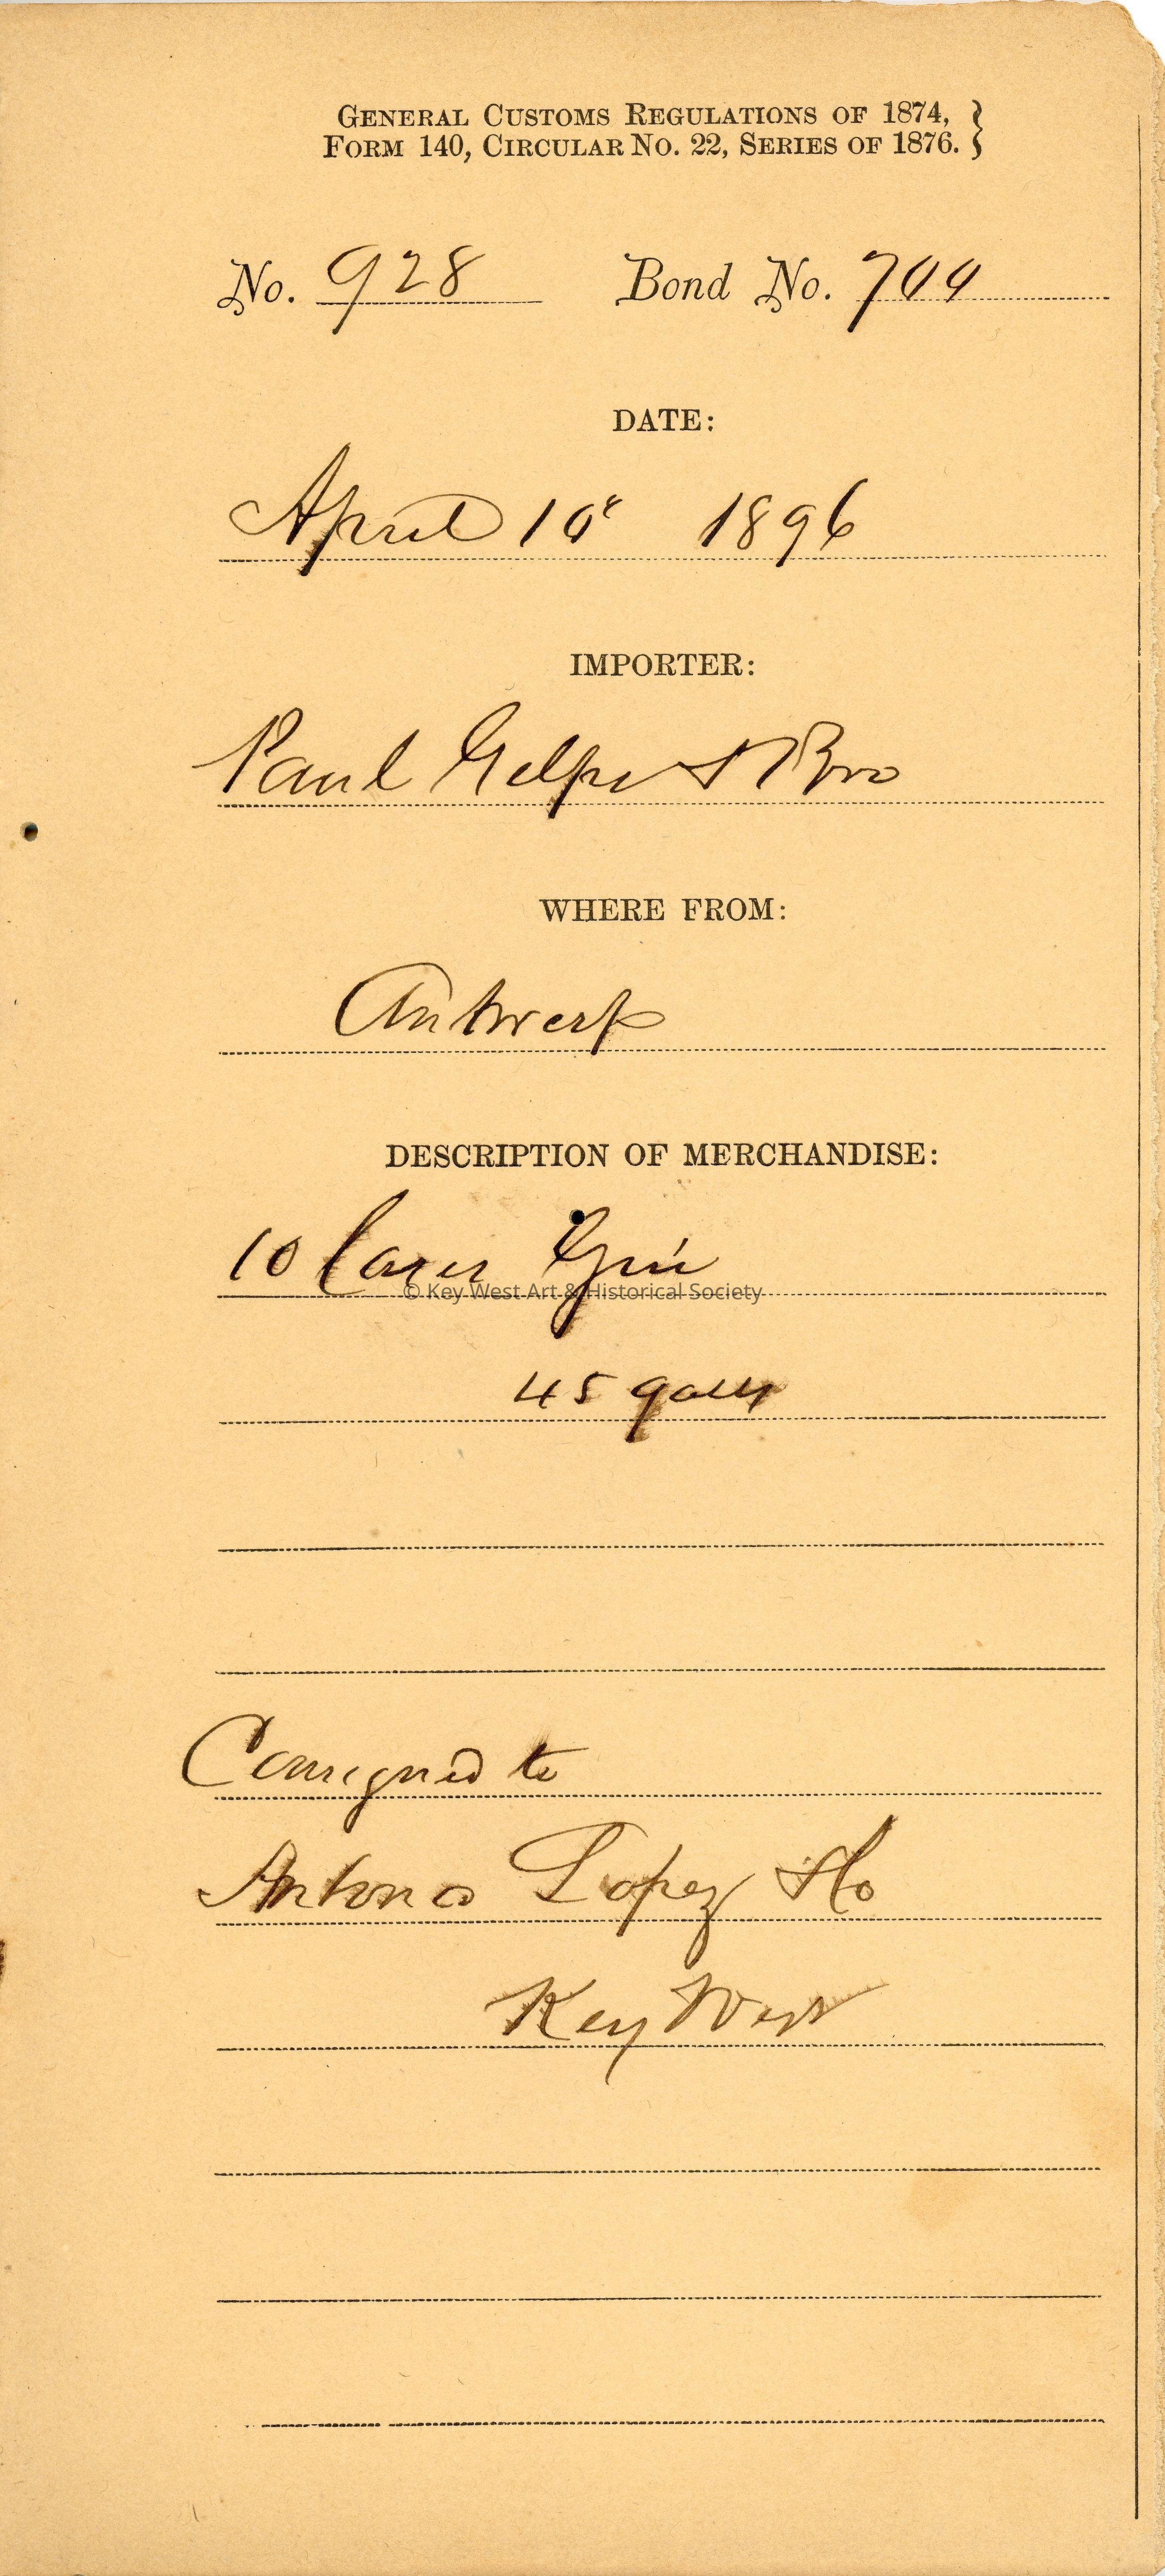 GENERAL CUSTOMS REGULATIONS OF 1874,
FORM 140, CIRCULAR NO. 22, SERIES OF 1876.
No. 928 Bond No.
DATE:
April 1896
IMPORTER:
Paul Gelpi & Bro
WHERE FROM:
Antwerp
DESCRIPTION OF MERCHANDISE:
10 Cases Gin
© Key West Art & Historical Society
45 galls
Consigned to
Antonio Lopez
Key West